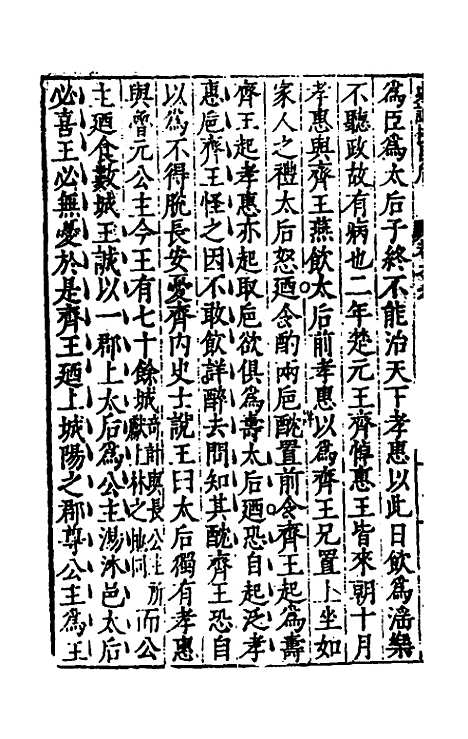 爲臣爲太后子終不能治天下孝惠以此日飲爲滛樂
不聽政故有病也二年楚元王齊悼惠王皆來朝十月
孝惠與齊王燕飲太后前孝惠以爲齊王兄置上坐如
家人之禮太后怒廼令酌兩巵酖置前令齊王起爲壽
齊王起孝惠亦起取巵欲俱爲壽太后廼恐自起泛孝
惠巵齊王怪之因不敢飲詳醉去問知其酖齊王恐自
以爲不得脫長安憂齊內史士說王曰太后獨有孝惠
與魯元公主今王有七十餘城奇計與長公主所獻上林之地同而公
主廼食數城王誠以一郡上太后爲公主湯沐邑太后
必喜王必無憂於是齊王廼上城陽之郡尊公主爲王